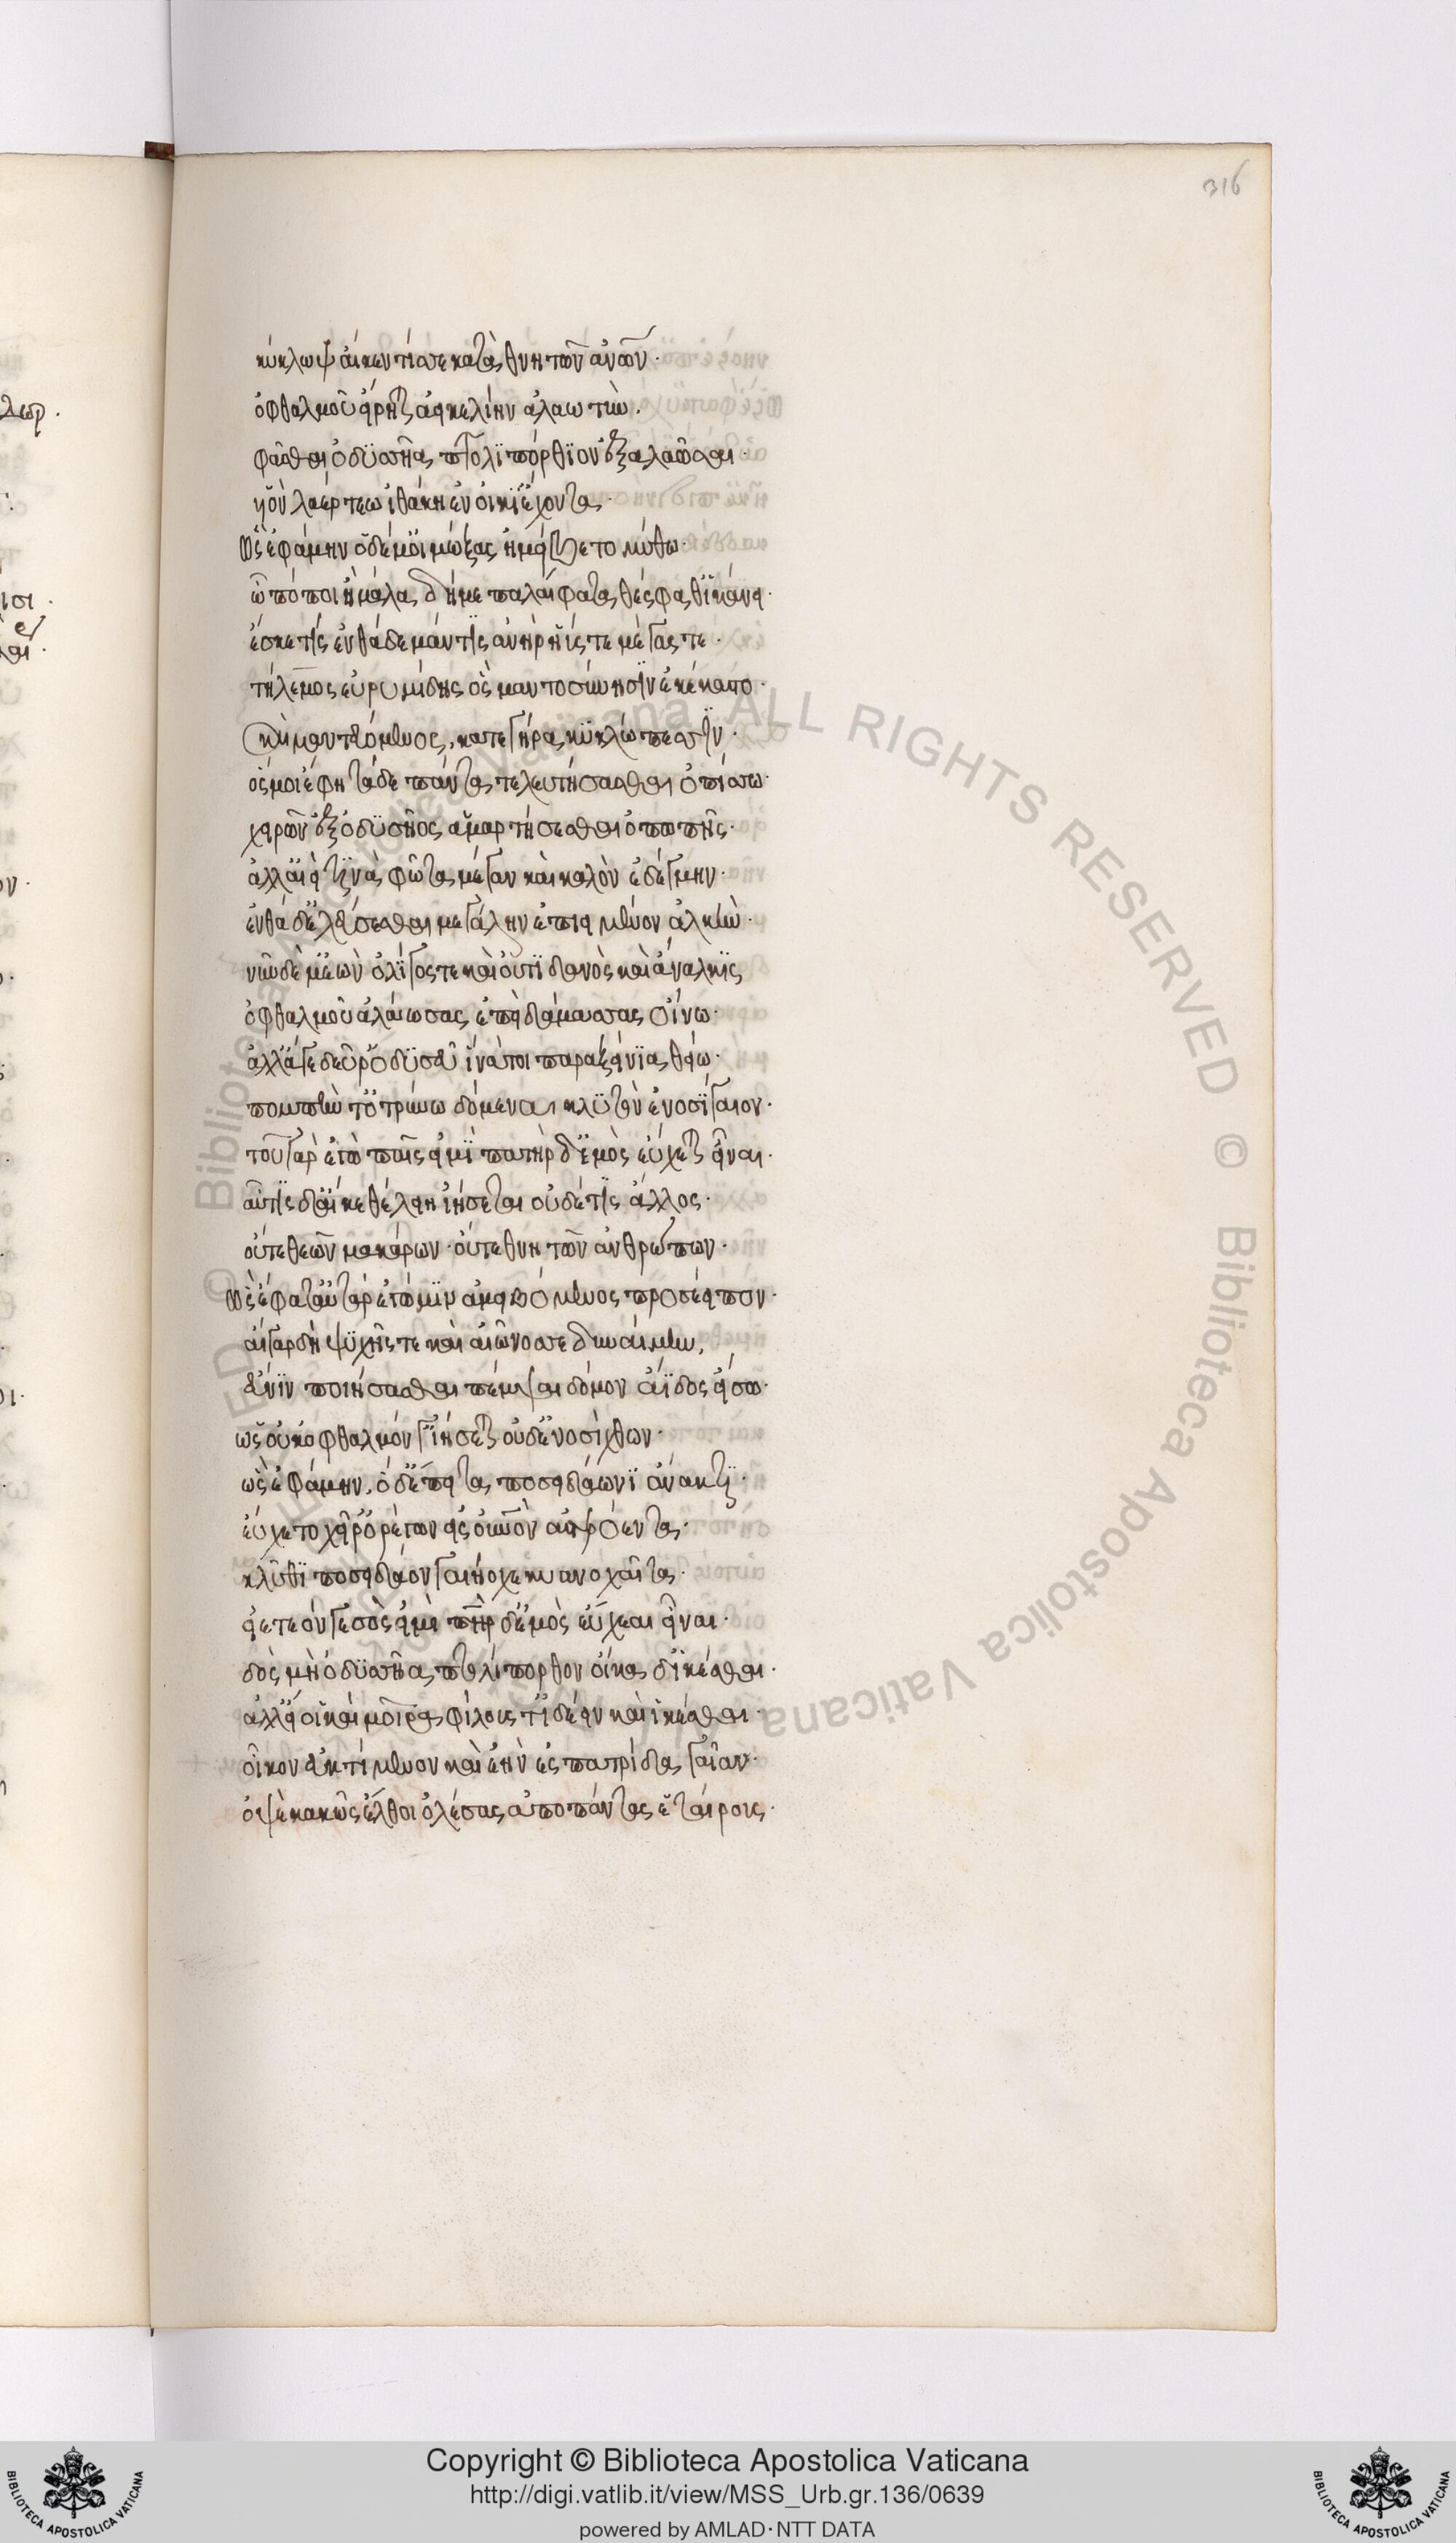 316
κύκλωψ αἴκέν τίς σε καταθνητῶν ἀνῶν·
ὀφθαλμοῦ εἴρηται ἀεικελίην ἀλαωτύν.
φάσθαι ὀδυσσῆα πτολιπόρθιον ἐξαλαῶσαι·
υἱὸν λαέρτεω ἰθάκη ἐν οἰκί ἔχοντα·
ὣς ἐφάμην ὁ δέ μ' οἰμώξας ἠμείβετο μύθω·
ὢ πόποι ἦ μάλα δή με παλαίφατα θέσφαθ' ἱκάνει·
ἔσκέ τις ἐνθάδε μάντις ἀνὴρ ἠΰς τε μέγας τε·
τήλεμος εὐρυμίδης ὃς μαντοσύνη σϊν ἐκέκαστο·
καὶ μαντευόμενος, κατεγήρα κυκλώπεσσϊν·
ὅς μοι ἔφη τάδε πάντα τελευτήσασθαι ὀπίσσω·
χειρῶν ἐξ ὀδυσῆος ἁμαρτήσεσθαι ὀπωπῆς·
ἀλλ' αἰεί τϊνα φῶτα μέγαν καὶ καλὸν ἐδέγμην·
ἐνθάδ' ἐλεύσεσθαι μεγάλην ἐπιειμένον ἀλκήν·
νῦν δέ μ' ἐὼν ὀλίγος τε καὶ οὐτιδανὸς καὶ ἄναλκϊς
ὀφθαλμοῦ ἀλάωσας ἐπεὶ δαμάσσας οἴνω·
ἀλλ' ἄγε δεῦρ' ὀδυσεῦ ἵνά τοι παραξείνια θείω·
πομπήν τ' ὀτρύνω δόμεναι κλυτὸν ἐνοσίγαιον·
τοῦ γὰρ ἐγὼ πάϊς εἰμὶ πατὴρ δ' ἐμὸς εὔχεται εἶναι·
αὐτὸς δ' αἴ κε θέλησ' ἰήσεται οὐδέ τις ἄλλος·
οὔτε θεῶν μακάρων· οὔτε θνητῶν ἀνθρώπων·
ὣς ἔφατ' αὐτὰρ ἐγώ μιν ἀμειβόμενος προσέειπον·
αἲ γὰρ δὴ ψυχῆς τε καὶ αἰῶνος σε δυναίμην,
εὖνιν ποιήσασθαι πέμψαι δόμον ἄϊδος εἴσω·
ὡς οὐκ ὀφθαλμόν γ' ἰήσεται οὐδ' ἐνοσίχθων·
ὣς ἐφάμην, ὁ δ' ἔπειτα ποσειδάωνϊ ἄνακτϊ·
εὔχετο χεῖρ' ὀρέγων εἰς οὐρανὸν ἀστερόεντα·
κλῦθϊ ποσείδαον γαιήοχε κυανοχαῖτα·
εἰ ἐτεόν γε σός εἰμὶ πὴρ δ' ἐμὸς εὔχεαι εἶναι·
δὸς μὴ ὀδυσσῆα πτολίπορθον οἴκαδ' ἱκέσθαι·
ἀλλ' εἴ οἱ καὶ μοῖρα φίλους τ' ἰδέειν καὶ ἱκέσθαι·
οἶκον ἐυκτίμενον καὶ ἑὴν ἐς πατρίδα γαῖαν·
ὀψὲ κακῶς ἔλθοι ὀλέσας ἀπο πάντας ἑταίρους·
Copyright © Biblioteca Apostolica Vaticana
http://digi.vatlib.it/view/MSS_Urb.gr.136/0639
powered by AMLAD·NTT DATA